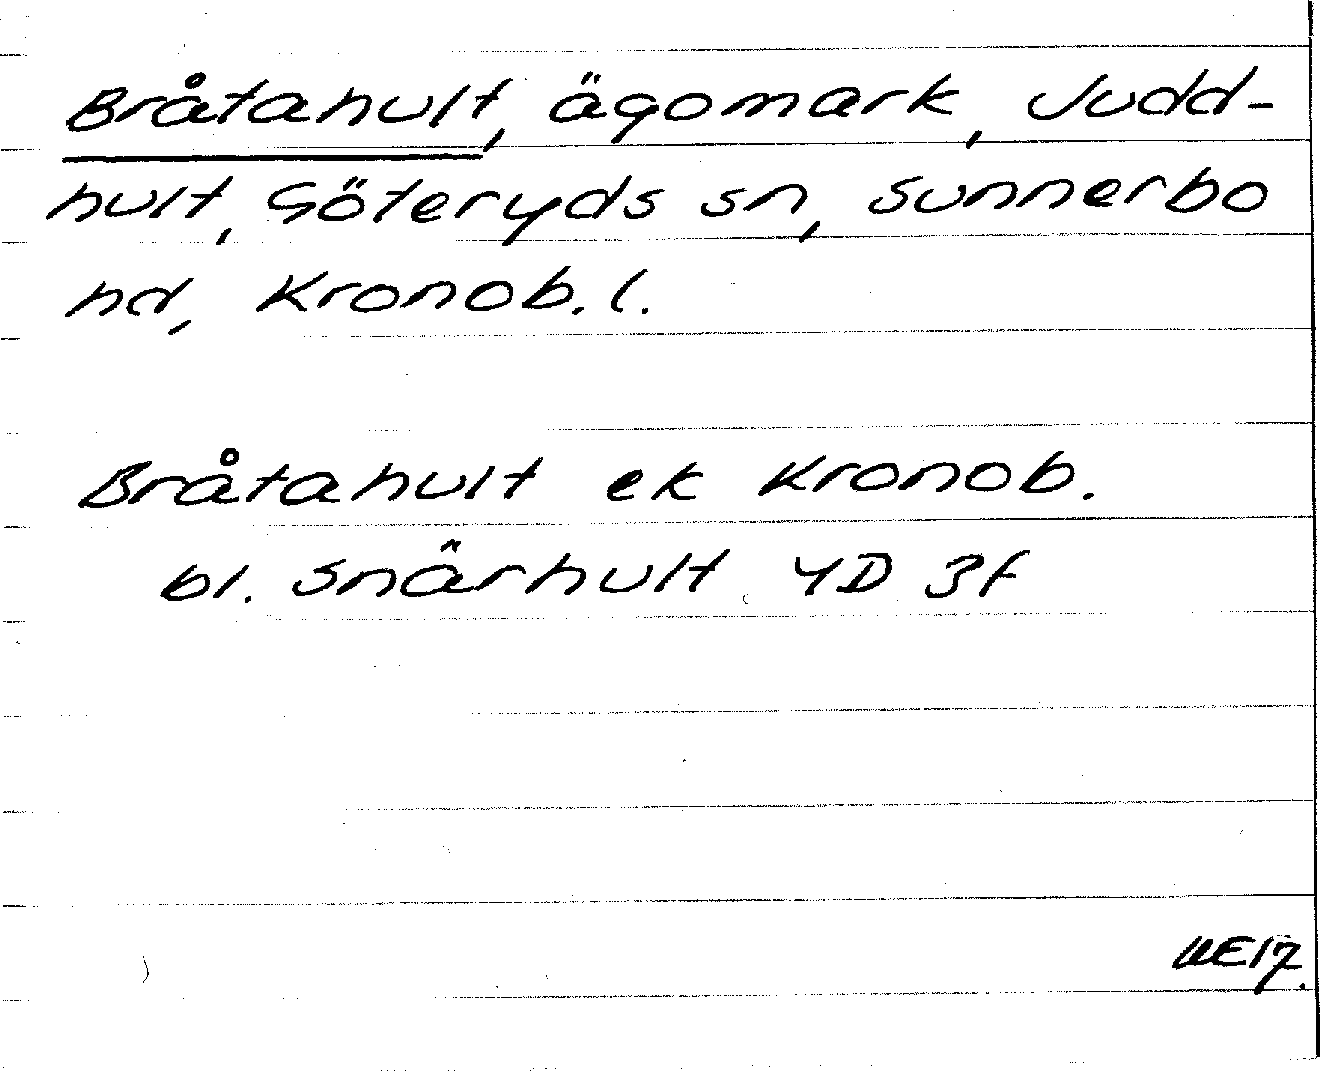 Bråtahult, ägomark, Judd-
hult, Göteryds sn, Sunnerbo
hd, Kronob. l.
Bråtahult ek Kronob.
bl. Snärhult 4D 3f